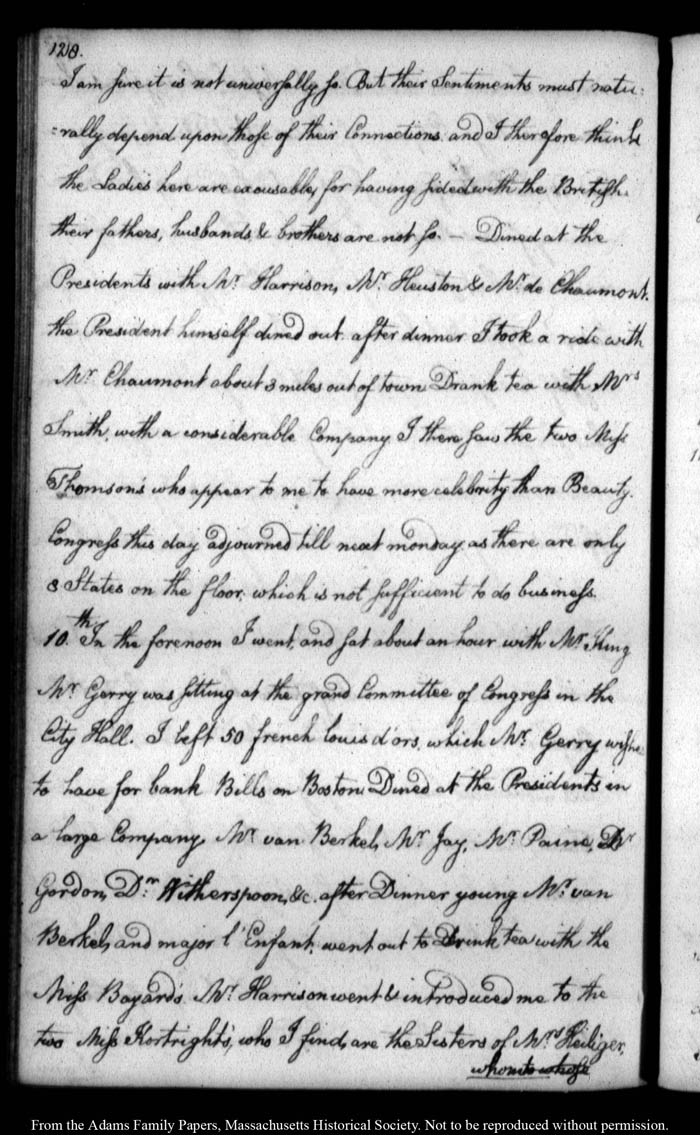 128.
I am sure it is not universally so. But their Sentiments must natu:
:rally depend upon those of their Connections. and I therefore think
the Ladies here are excusable, for having sided with the British.
their fathers, husbands & brothers are not so. — Dined at the
Presidents with Mr. Harrison, Mr. Heuston & Mr. de Chaumont.
the President himself dined out. after dinner I took a ride with
Mr. Chaumont about 3 miles out of town. Drank tea with Mrs
Smith, with a considerable Company. I there saw the two Miss
Thomson's who appear to me to have more celebrity than Beauty.
Congress this day adjourned till next monday, as there are only
8 States on the floor, which is not sufficient to do business.
10.th In the forenoon I went, and sat about an hour with Mr. King
Mr. Gerry was sitting at the grand Committee of Congress in the
City Hall. I left 50 french louis d'ors, which Mr. Gerry wishe
to have for bank Bills on Boston. Dined at the Presidents in
a large Company, Mr. van Berkel, Mr. Jay, Mr. Paine, Dr.
Gordon, Dr. Witherspoon, &c. after Dinner young Mr. van
Berkel, and major l'Enfant, went out to Drink tea with the
Miss Bayard's. Mr. Harrison went & introduced me to the
two Miss Kortright's, who I find, are the Sisters of Mrs. Heiliger,
From the Adams Family Papers, Massachusetts Historical Society. Not to be reproduced without permission.